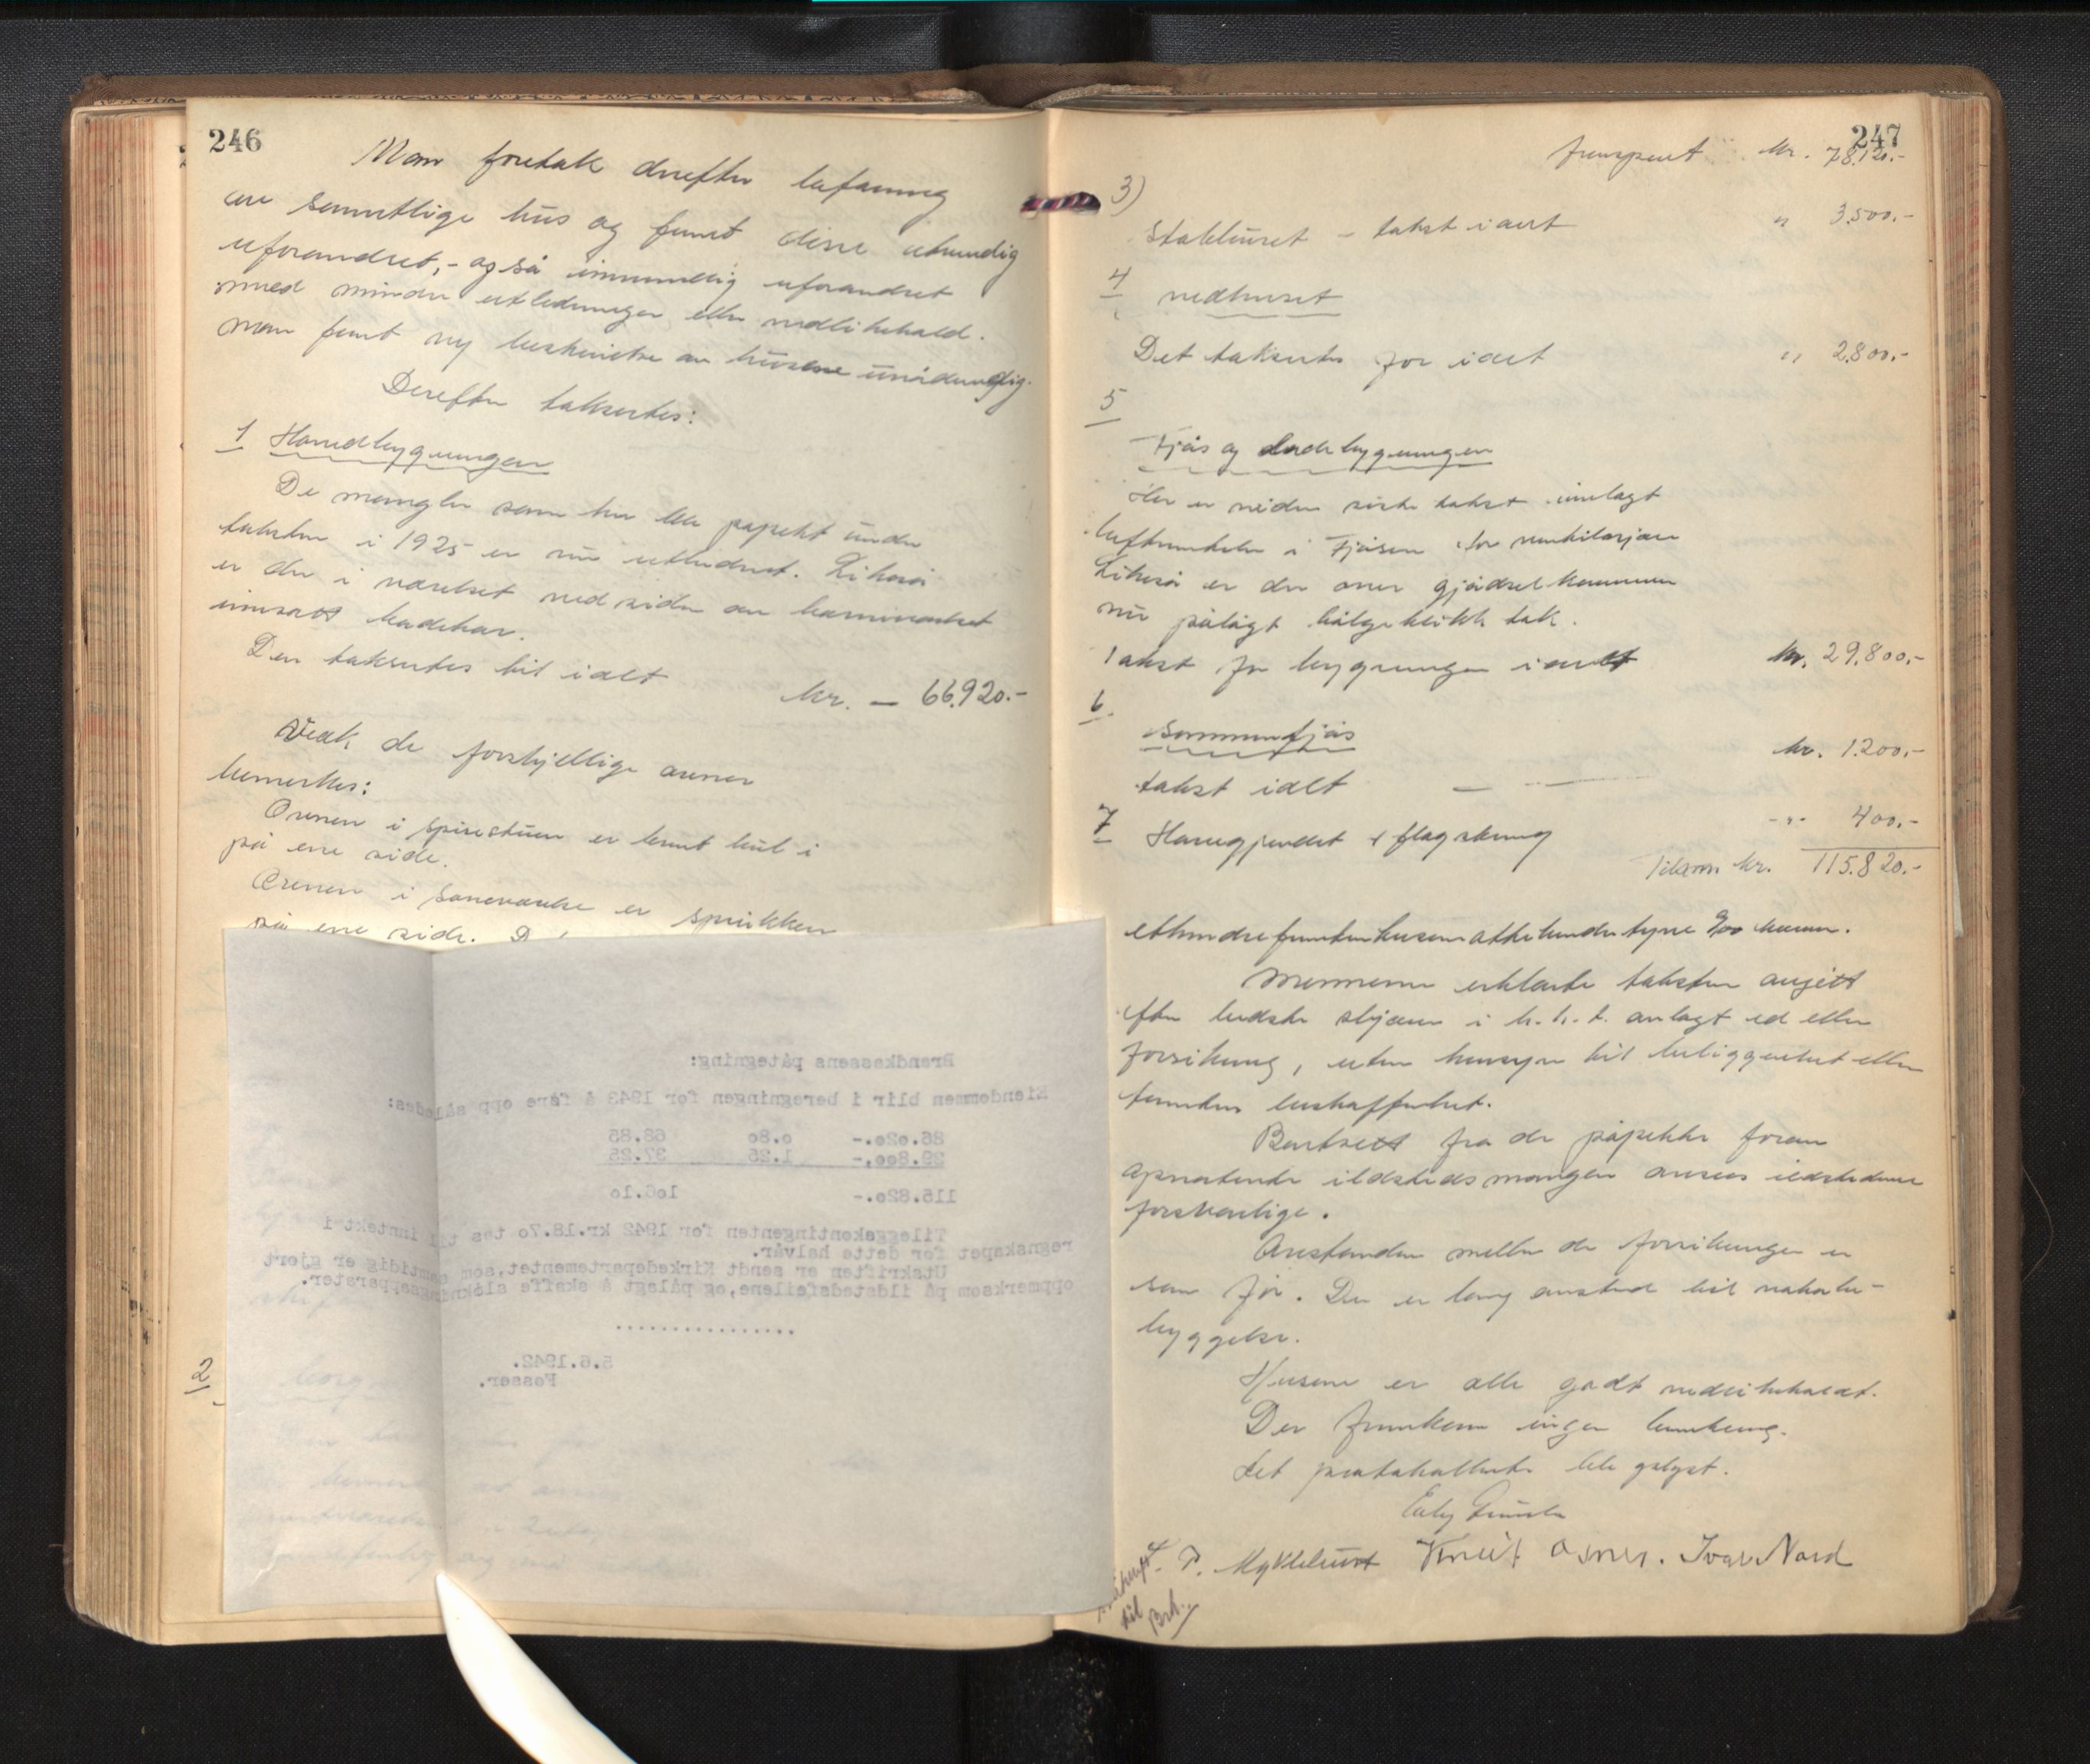 246
Man foretok derefter befaring
av samtlige hus og fant disse utvendig
uforandret, - også innvendig uforandret
med mindre utbedringer eller vedlikehold.
Man fant ny beskrivelse av husene unødvendig.
Derefter takseredes:
1 Hovedbygningen
De mangler som her ble papekt under
taksten i 1925 er nu utbedret. Likeså
er der i værelset ved siden av
innsatt badekar.
Den takseredes til ialt
kr. — 66.920.-
Vedk de forskjellige ovner
bemerkes:
Ovnen i spisestuen er brent hul i
på ene side.
Ovnen i soveværelse er sprukken
på ene side.
2
Brandkassens påtegning:
Eiendommen blir i beregningen for 1943 å føre opp således:
86.020.- 0.80 68.85
29.800.- 1.25 37.25
115.820.- 106.10
Tilleggskontingenten for 1942 kr.18.70 tas til inntekt i
regnskapet for dette halvår.
Utskriften er sendt Kirkedepartementet, som samtidig er gjort
oppmerksom på ildstedsfeilene, og pålagt å skaffe slokningsapparater.
................
5.6.1942.
Fosser.
247
Transport kr. 78.120.-
3)
Stabburet - takst i alt " 3.500.-
4 vedhuset
Det takseres for ialt " 2.800.-
5
Fjøs og ladebygningen
Her er siden siste takst innlagt
i Fjøsen for ventilasjon
Likeså er der over gjødselkummen
nu pålagt bølgeblikk tak.
Takst for bygningen i alt kr. 29.800.-
6.
Sommerfjøs kr. 1.200.-
takst ialt — —
7 Havegjerdet + flagstang -"- 400.-
Tilsam. kr. 115.820.-
etthundrefemtentusenattehundretyve 0/00 kroner.
Mennene erklærte taksten avgitt
efter bedste skjønn i h. h. t. avlagt ed eller
forsikring, uten hensyn til beliggenhet eller
tomtens beskaffenhet.
Bortsett fra de påpekte foran
ildstedsmangler ansees ildstedene
forsvarlige.
Avstanden mellem de forsikringer er
som før. Der er lang avstand til nabobe-
byggelse.
Husene er alle godt vedlikeholdt.
Der fremkom ingen bemerkning.
Det protokollerte ble oplyst.
P. Myklebust Knut Ivar Nord
til
Brk.